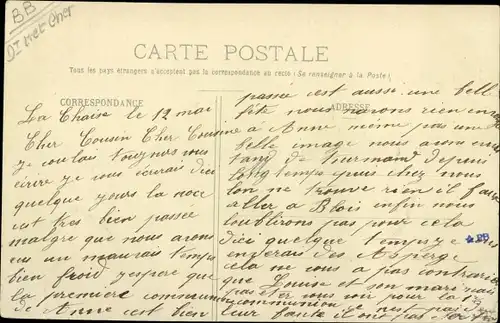 BB
Dt Loir et Cher
CARTE POSTALE
Tous les pays étrangers n'acceptent pas la correspondance au recto (Se renseigner à la Poste)
CORRESPONDANCE
ADRESSE
La Chaise le 12 mai
Cher Cousin Cher Cousine
je voulais toujours vous
écrire je vous écerais dici
quelque jours la noce
cest tres bien passée
malgre que nous avons
eus un mauvais temps
bien froid jespere que
la première communion
de Anne cest bien
passée cest aussi une belle
fête nous navons rien envoyé
a Anne même pas une
belle image nous avons
tand de tourmand depuis
longtemps puis chez nous
lon ne trouve rien il faut
aller a Blois enfin nous
loublirons pas pour cela
dici quelque temps je
enverais des Asperge
cela ne vous a pas contrarier
que Louise et son mari
pas eter vous voir pour la 1er
communion ce nest pas de
leur faute il ont pas
BB